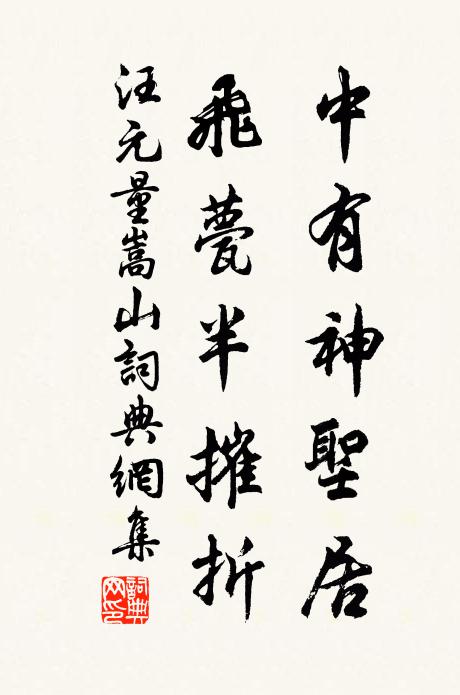 中有神聖居
飛甍半摧折
汪元量嵩山詞典網集
詞典網印